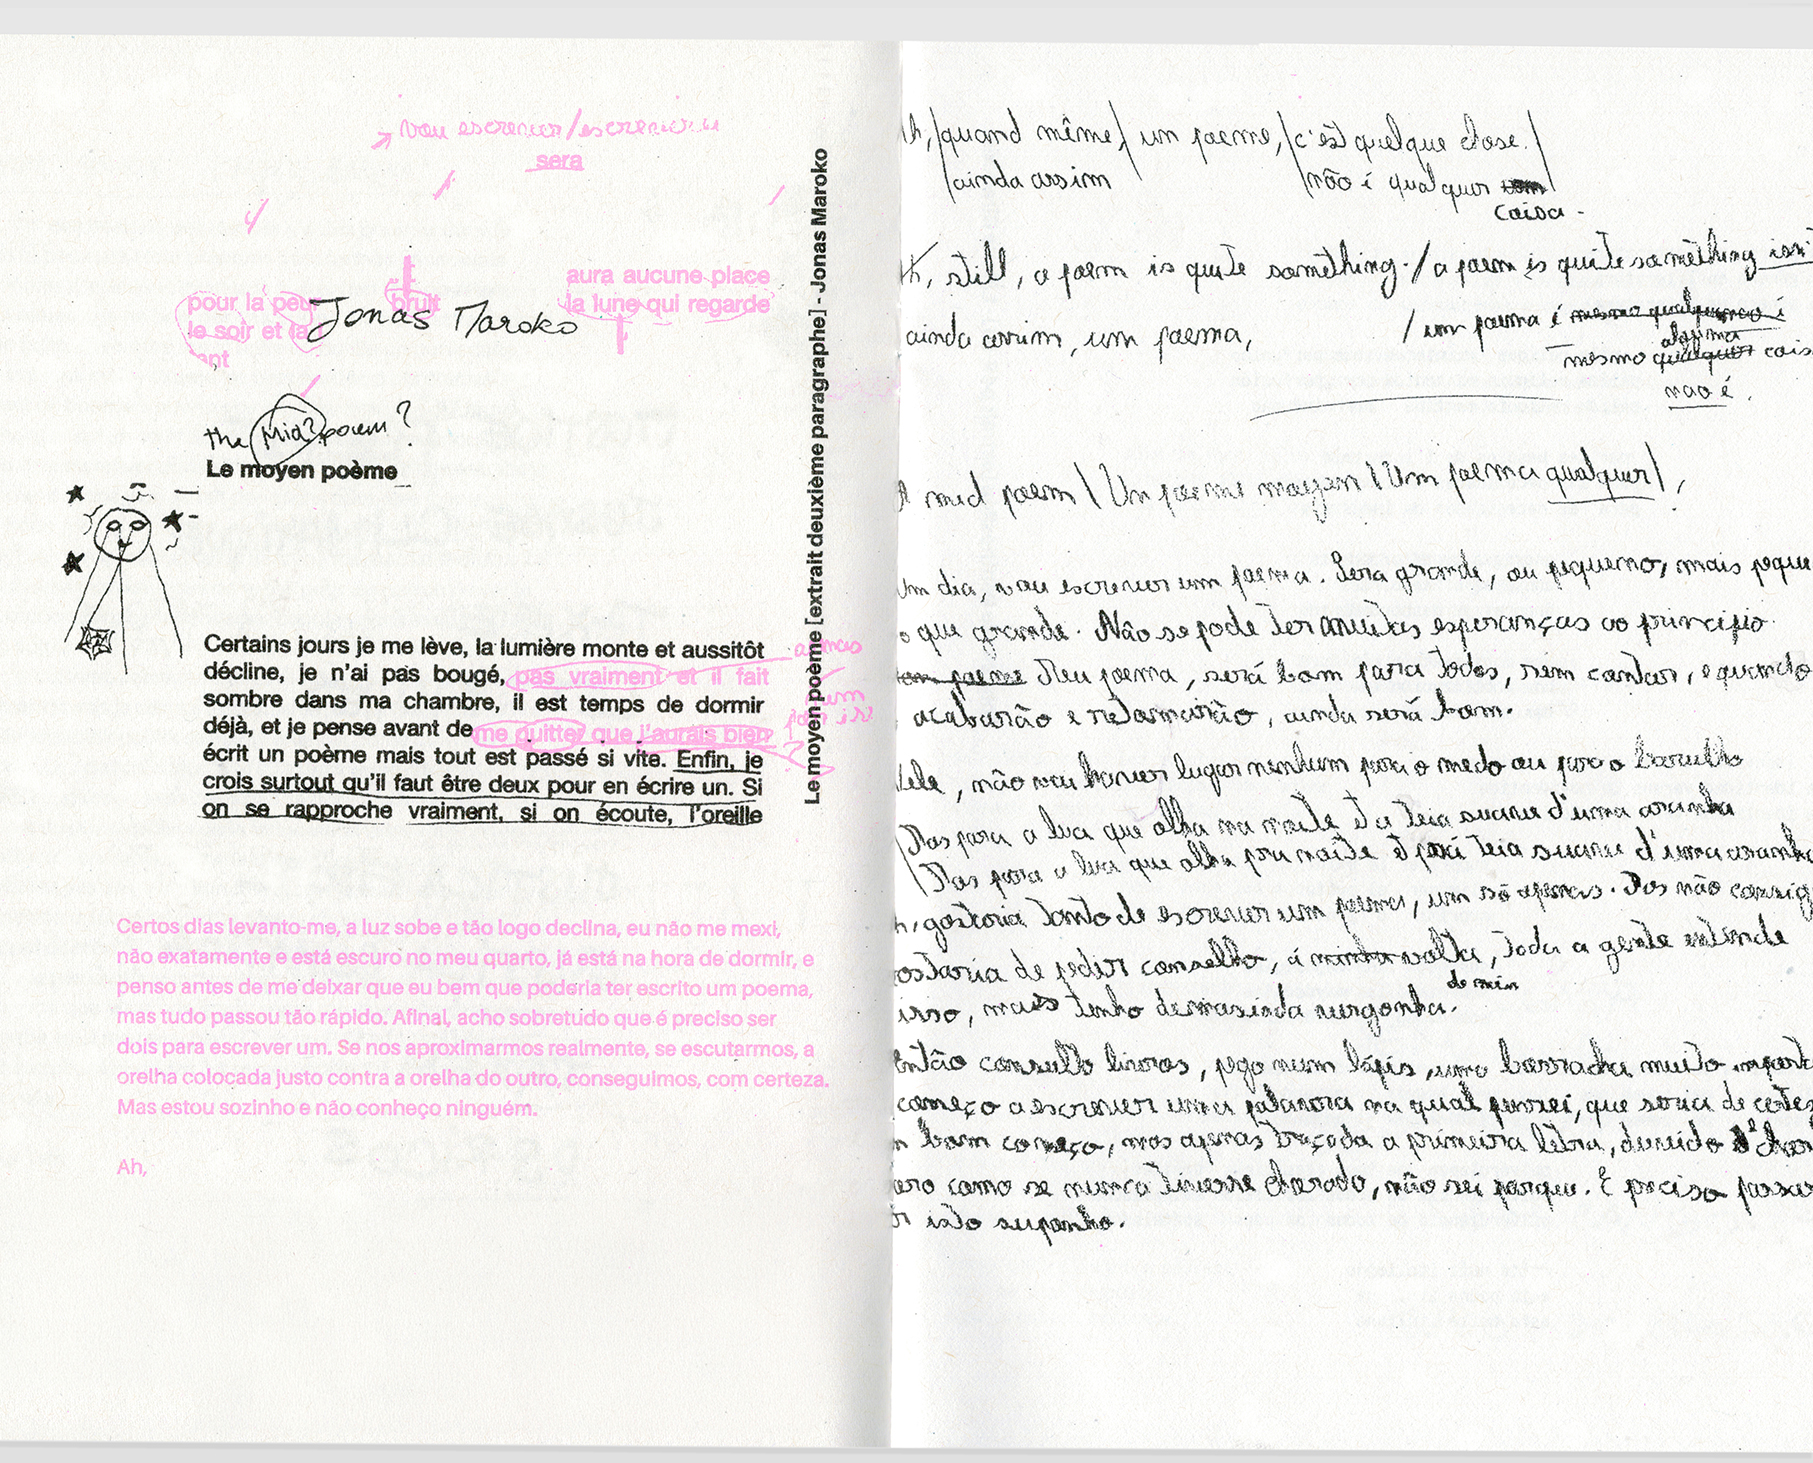 vou escrever/escreverei
sera
aura aucune place
pour la peu
bruit
la lune qui regarde
le soir et la
Jonas Maroko
the Mid? poem?
Le moyen poème
Certains jours je me lève, la lumière monte et aussitôt
décline, je n'ai pas bougé, pas vraiment et il fait
sombre dans ma chambre, il est temps de dormir
déjà, et je pense avant de me quitter que j'aurais bien
écrit un poème mais tout est passé si vite. Enfin, je
crois surtout qu'il faut être deux pour en écrire un. Si
on se rapproche vraiment, si on écoute, l'oreille
Certos dias levanto-me, a luz sobe e tão logo declina, eu não me mexi,
não exatamente e está escuro no meu quarto, já está na hora de dormir, e
penso antes de me deixar que eu bem que poderia ter escrito um poema,
mas tudo passou tão rápido. Afinal, acho sobretudo que é preciso ser
dois para escrever um. Se nos aproximarmos realmente, se escutarmos, a
orelha colocada justo contra a orelha do outro, conseguimos, com certeza.
Mas estou sozinho e não conheço ninguém.
Ah,
Le moyen poème [extrait deuxième paragraphe] - Jonas Maroko
quand même, un poeme, c'est quelque chose.
ainda assim
não é qualquer
coisa
still, a poem is quite something. / a poem is quite something isn't
ainda assim, um poema, / um poema é
alguma
mesmo cois
nao é.
mid poem \ Un poeme moyen \ Um poema qualquer
Um dia, vou escrever um poema. Sera grande, ou pequeno, mais peque
o que grande. Não se pode ter muitas esperanças ao principio.
Meu poema, será bom para todos, sem contar, e quando
acabarão e retomarão, ainda será bom.
Nele, não vai haver lugar nenhum para o medo ou para o barulho
Mas para a lua que olha na noite e a teia suave d'uma aranha
Mas para a lua que olha pra noite e pra teia suave d'uma aranha
gostaria tanto de escrever um poema, um só apenas. Mas não consig
ostaria de pedir conselho, á minha volta, toda a gente entende
de mim
isso, mais tenho demasiada vergonha.
Então consulto livros, pego num lápis, uma borracha muito
começo a escrever uma palavra na qual pensei, que seria de certez
bom começo, mas apenas traçada a primeira letra, duvido
como se nunca tivesse chorado, não sei porque. É preciso passar
isto suponho.